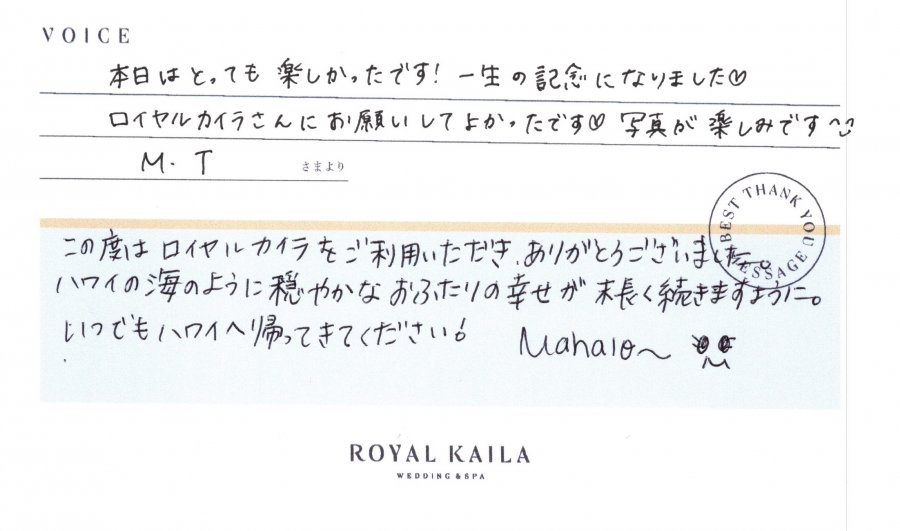 VOICE
本日はとっても楽しかったです! 一生の記念になりました♡
ロイヤルカイラさんにお願いしてよかったです♡ 写真が楽しみです〜
M.T さまより
BEST THANK YOU MESSAGE
この度はロイヤルカイラをご利用いただき、ありがとうございました。
ハワイの海のように穏やかなおふたりの幸せが末長く続きますように。
いつでもハワイへ帰ってきてください!
Mahalo〜
ROYAL KAILA
WEDDING & SPA